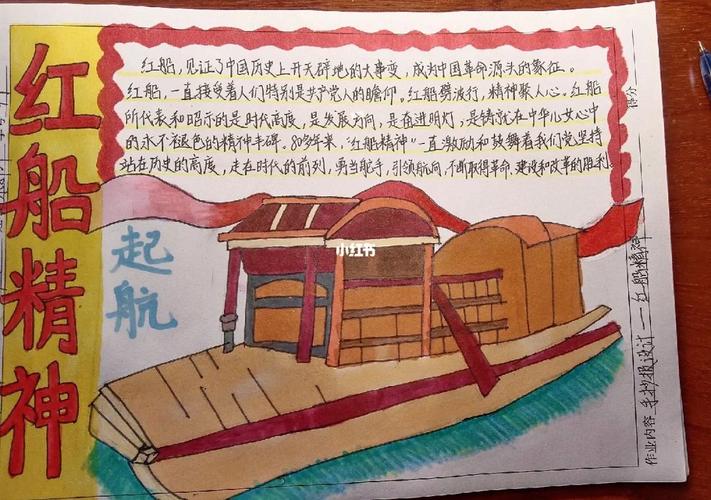 红船精神
红船,见证了中国历史上开天辟地的大事变,成为中国革命源头的象征。
红船,一直接受着人们特别是共产党人的瞻仰。红船劈波行,精神聚人心。红船
所代表和昭示的是时代高度,是发展方向,是奋进明灯,是铸就在中华儿女心中
的永不褪色的精神丰碑。80多年来,"红船精神"一直激励和鼓舞着我们党坚持
站在历史的高度,走在时代的前列,勇当舵手,引领航向,不断取得革命、建设和改革的胜利。
起航
小红书
得分
作业内容 手抄报设计——红船精神